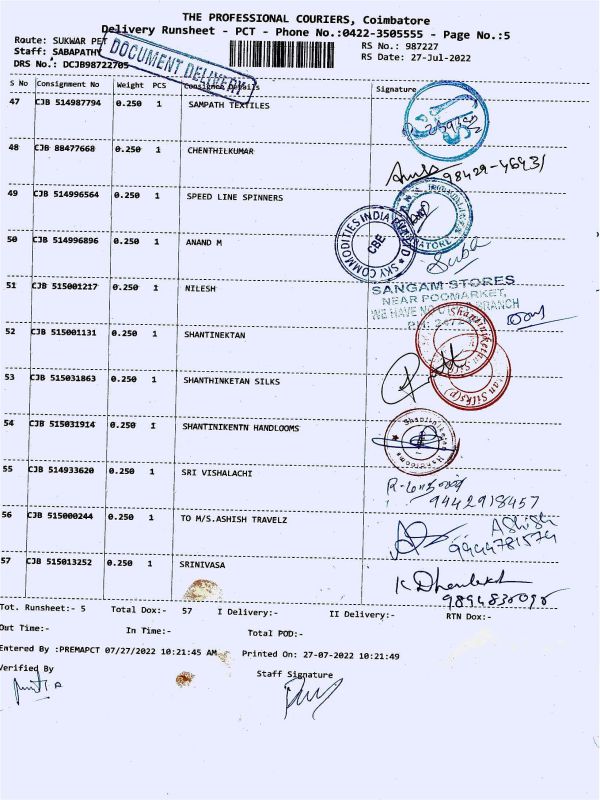 THE PROFESSIONAL COURIERS, Coimbatore
Delivery Runsheet - PCT - Phone No.:0422-3505555 - Page No.:5
Route: SUKWAR PET
RS No.: 987227
Staff: SABAPATHY
RS Date: 27-Jul-2022
DRS No.: DCJB98722705
DOCUMENT DELIVERY
S No Consignment No Weight PCS Consignee Details Signature
47 CJB 514987794 0.250 1 SAMPATH TEXTILES
48 CJB 88477668 0.250 1 CHENTHILKUMAR
98429-46431
49 CJB 514996564 0.250 1 SPEED LINE SPINNERS
50 CJB 514996896 0.250 1 ANAND M
SKY COMMODITIES INDIA
CBE
Suba
51 CJB 515001217 0.250 1 NILESH
SANGAM STORES
NEAR POOMARKET,
WE HAVE NO BRANCH
52 CJB 515001131 0.250 1 SHANTINEKTAN
Shantiniketan
53 CJB 515031863 0.250 1 SHANTHINKETAN SILKS
an Silks(P)
54 CJB 515031914 0.250 1 SHANTINIKENTN HANDLOOMS
Shantiniketan Handlooms
55 CJB 514933620 0.250 1 SRI VISHALACHI
9442918457
56 CJB 515000244 0.250 1 TO M/S.ASHISH TRAVELZ
AShish
9944781574
57 CJB 515013252 0.250 1 SRINIVASA
Tot. Runsheet:- 5 Total Dox:- 57 I Delivery:- II Delivery:- RTN Dox:-
Out Time:- In Time:- Total POD:-
Entered By :PREMAPCT 07/27/2022 10:21:45 AM Printed On: 27-07-2022 10:21:49
Verified By
Staff Signature